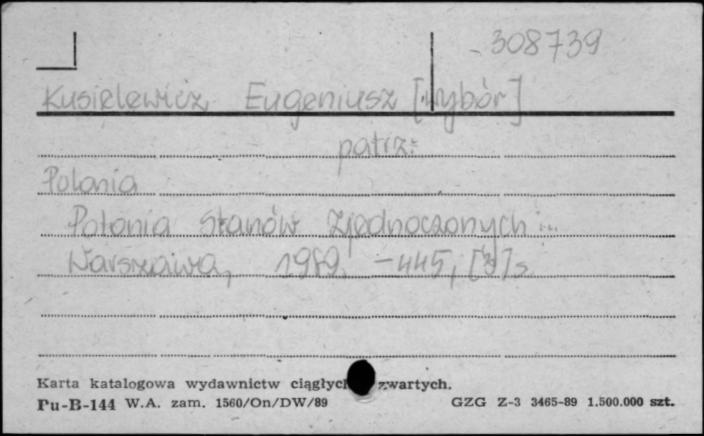 308739
Kusielewicz Eugeniusz [Wybór]
patrz:
Polonia
Polonia Stanów Zjednoczonych ...
Warszawa, 1989. -445, [3] s.
Karta katalogowa wydawnictw ciągłych zwartych.
Pu-B-144 W.A. zam. 1560/On/DW/89 GZG Z-3 3465-89 1.500.000 szt.